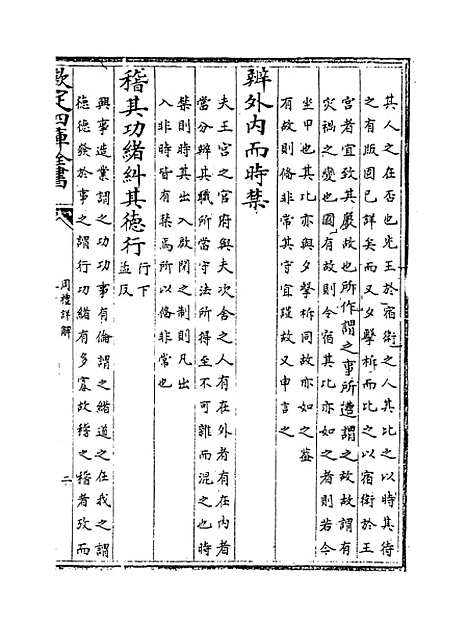 其人之在否也先王於宿衛之人其比之以時其待
之有版圖已詳矣而又夕擊柝而比之以宿衛於王
宮者宜致其嚴故也所作謂之事所遭謂之故故謂有
災禍之變也國有故則令宿其比亦如之者則若今
坐甲也其比亦與夕擊柝同故亦如之蓋
有故則備非常其守宜謹故又申言之
辨外内而時禁
夫王宮之官府與夫次舍之人有在外者有在内者
當分辨其職所當守法所得至不可雜而混之也時
禁則時其出入啟閉之制則凡出
入非時皆有禁焉所以備非常也
稽其功緒糾其德行行下孟反
興事造業謂之功功事有倫謂之緒道之在我之謂
德德發於事之謂行功緒有多寡故稽之稽者攷而
欽定四庫全書
周禮詳解
二